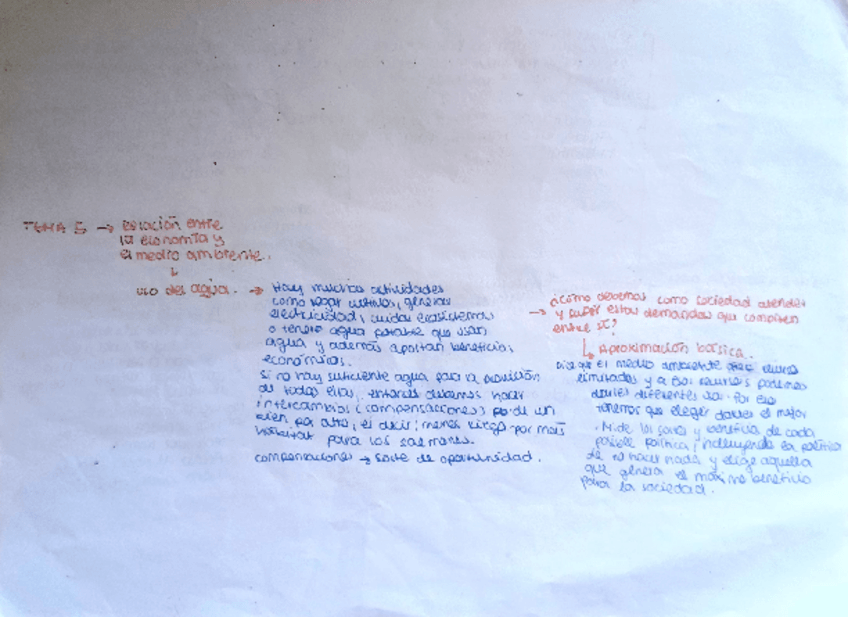 TEMA 5 → Relación entre
la economía y
el medio ambiente.
↓
uso del agua. →
Hay muchas actividades
como regar cultivos, generar
electricidad, cuidar ecosistemas
o tener agua potable que usan
agua y además aportan beneficios
económicos.
Si no hay suficiente agua para la provisión
de todas ellas, entonces debemos hacer
intercambios (compensaciones) de un
bien por otro, es decir, menos riego por más
hábitat para los salmones.
compensaciones → coste de oportunidad.
→ ¿Cómo debemos como sociedad atender
y suplir estas demandas que compiten
entre sí?
↳ Aproximación básica.
Dice que el medio ambiente recursos
limitados y a esos recursos podemos
darles diferentes usos. Por eso
tenemos que elegir darles el mejor
. Mide los costes y beneficios de cada
posible política, incluyendo la política
de no hacer nada y elige aquella
que genera el máximo beneficio
para la sociedad.